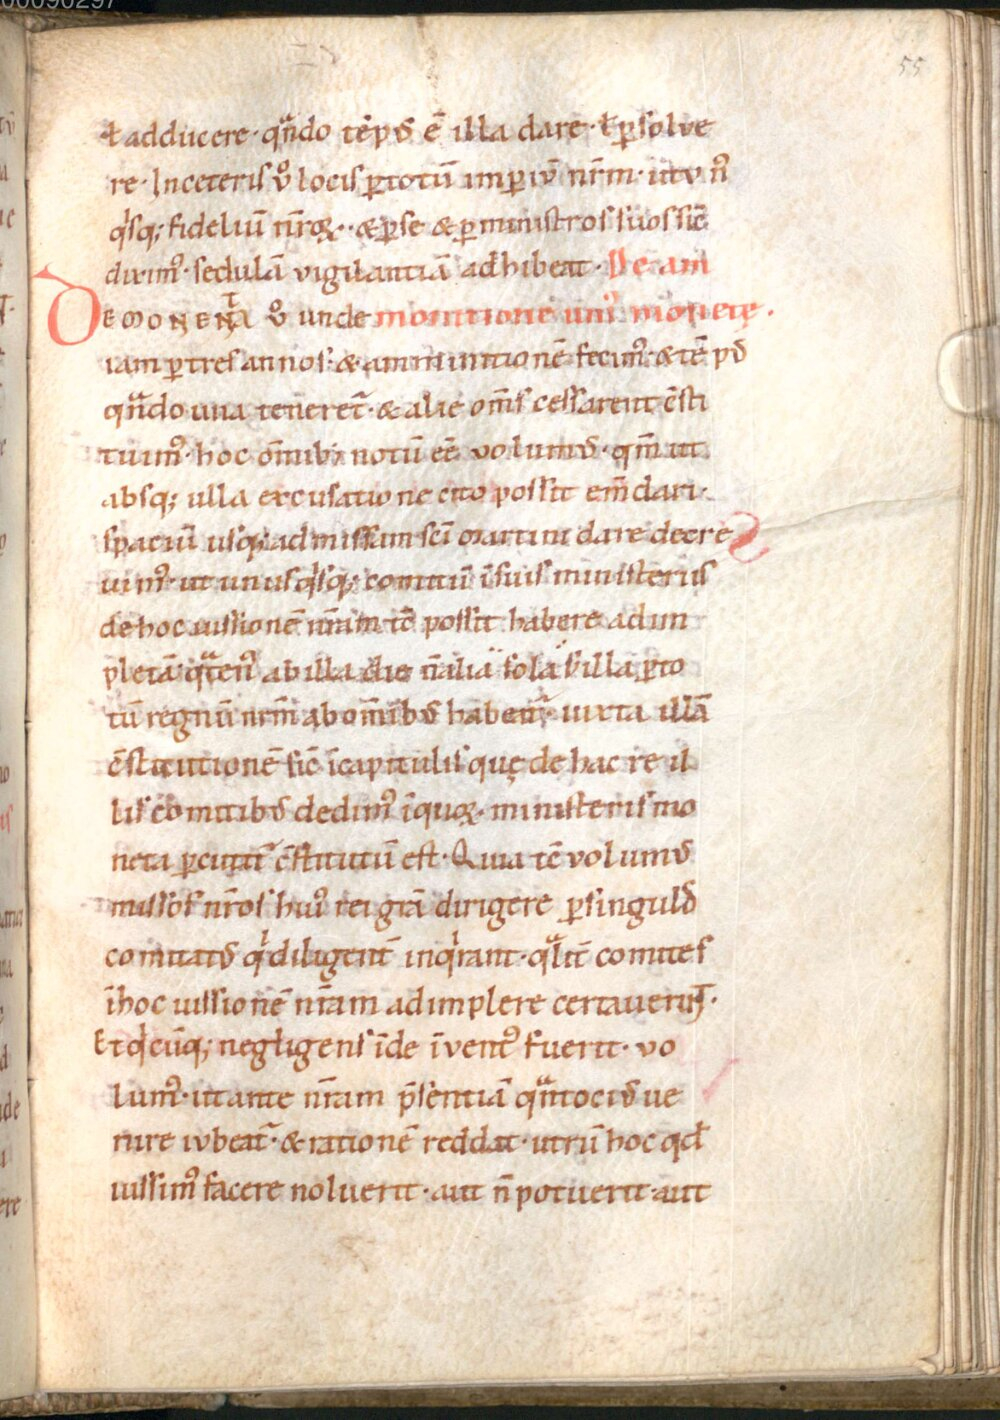 00090297
55
ł adducere · qn̄do tēpꝰ ē illa dare · ł ꝑsolve
re · Inceteris ů locis ꝑtotū imꝑiū nr̄m · ut v n̄
qͥsq; fidelium nr̄oꝝ · & ꝑse & ꝑministros suos sic̄
dixim᾽ · sedulā vigilantiā adhibeat · De am
DE MONETA ů unde monitione uni᾽ monetę .
iam ꝑtres annos · & ammunitionē fecim᾽ · & tēpꝰ
qn̄do una teneret᷑ · & alie om̄s cessarent c̄sti
tuim᾽ · hoc om̄ibꝫ notū eē volumꝰ · qm̄ ut
absq; ulla excusatione cito possit em̄dari ·
spaciū usq; ad missam sc̄i martini dare decre
uim᾽ · ut unusqͥsq; comitū ī suis ministeriis
de hoc iussionē nr̄am tc̄ possit habere adim
pletā · qͣten᾽ ab illa die n̄ alia sola s; illa ꝑto
tū regnū nr̄m ab om̄ibꝰ habeat᷑ · iuxta illā
c̄stitutionē sic̄ ī capitulis quę de hac re il
lis comitibꝰ dedim᾽ ī quoꝝ · ministeriis mo
neta ꝑcuti᷑ c̄stitutū est · Quia tc̄ volumꝰ
missos nr̄os hui᾽ rei gr̄a dirigere ꝑ singulꝰ
comitatꝰ qͥ diligent̄ inqͥrant · qͣlit̄ comites
ī hoc iussionē nr̄am adimplere certaverīt ·
Et qͥcūq; negligens īde īvent᾽ fuerit · vo
lum᾽ · ut ante nr̄am p̄sentiā qͣntociꝰ ve
nire ivbeat᷑ · & rationē reddat · utrū hoc qd̄
iussim᾽ facere noluerit · aut n̄ potuerit · aut